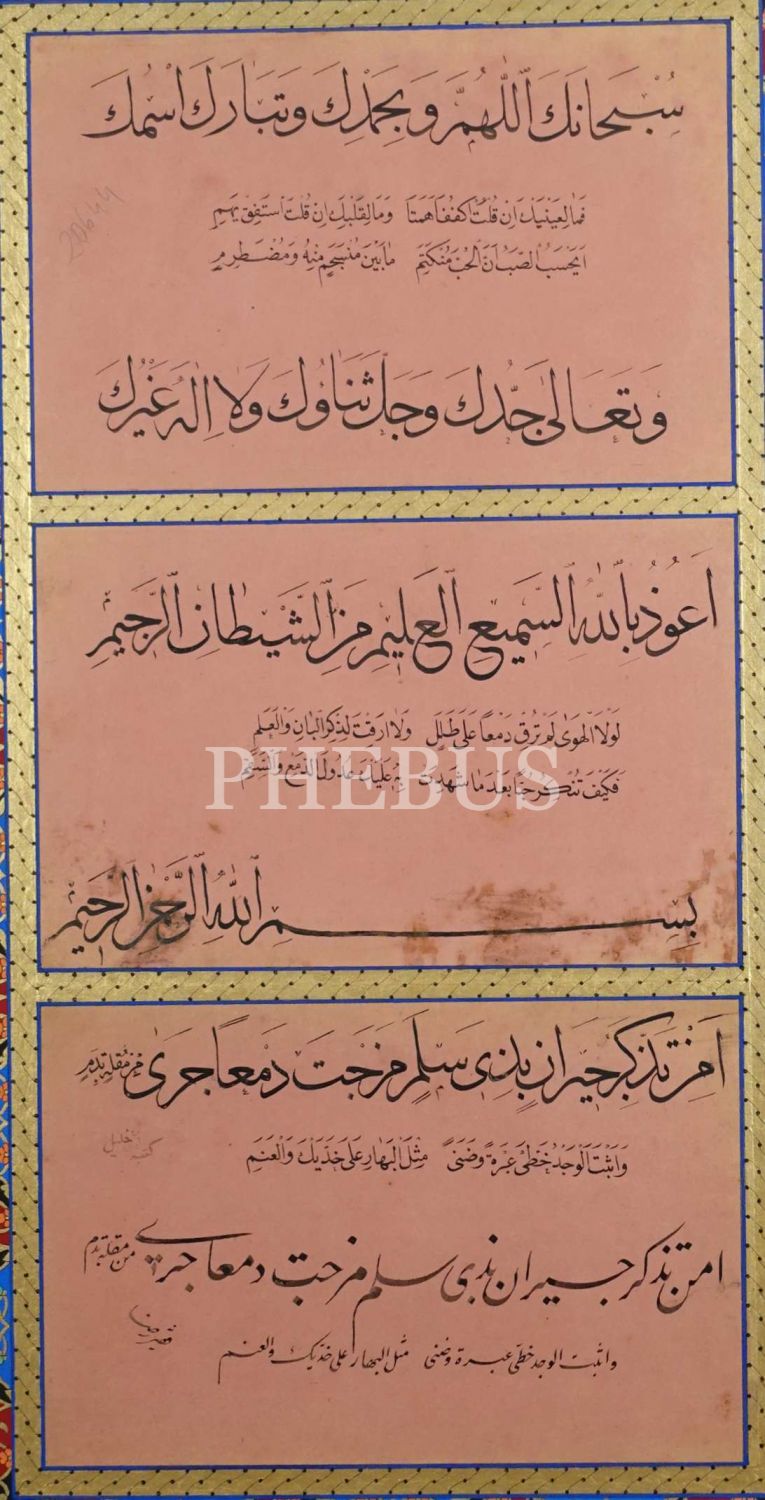 سُبْحَانَكَ اَللّٰهُمَّ وَبِحَمْدِكَ وَتَبَارَكَ اسْمُكَ
فَمَا لِعَيْنَيْكَ اِنْ قُلْتَ اكْفُفَا هَمَتَا وَمَا لِقَلْبِكَ اِنْ قُلْتَ اسْتَفِقْ يَهِمِ
اَيَحْسَبُ الصَّبُّ اَنَّ الْحُبَّ مُنْكَتِمٌ مَا بَيْنَ مُنْسَجِمٍ مِنْهُ وَمُضْطَرِمِ
وَتَعَالٰى جَدُّكَ وَجَلَّ ثَنَاؤُكَ وَلَا اِلٰهَ غَيْرُكَ
اَعُوذُ بِاللّٰهِ السَّمِيعِ الْعَلِيمِ مِنَ الشَّيْطَانِ الرَّجِيمِ
لَوْلَا الْهَوٰى لَمْ تُرِقْ دَمْعًا عَلٰى طَلَلٍ وَلَا اَرِقْتَ لِذِكْرِ الْبَانِ وَالْعَلَمِ
PHEBUS
فَكَيْفَ تُنْكِرُ حُبًّا بَعْدَ مَا شَهِدَتْ بِهِ عَلَيْكَ عُدُولُ الدَّمْعِ وَالسَّقَمِ
بِسْمِ اللّٰهِ الرَّحْمٰنِ الرَّحِيمِ
اَمِنْ تَذَكُّرِ جِيرَانٍ بِذِى سَلَمٍ مَزَجْتَ دَمْعًا جَرٰى مِنْ مُقْلَةٍ بِدَمِ
وَاَثْبَتَ الْوَجْدُ خَطَّىْ عَبْرَةٍ وَضَنًى مِثْلَ الْبَهَارِ عَلٰى خَدَّيْكَ وَالْعَنَمِ
امن تذكر جيران بذى سلم مزجت دمعا جرى من مقلة بدم
واثبت الوجد خطى عبرة وضنى مثل البهار على خديك والعنم